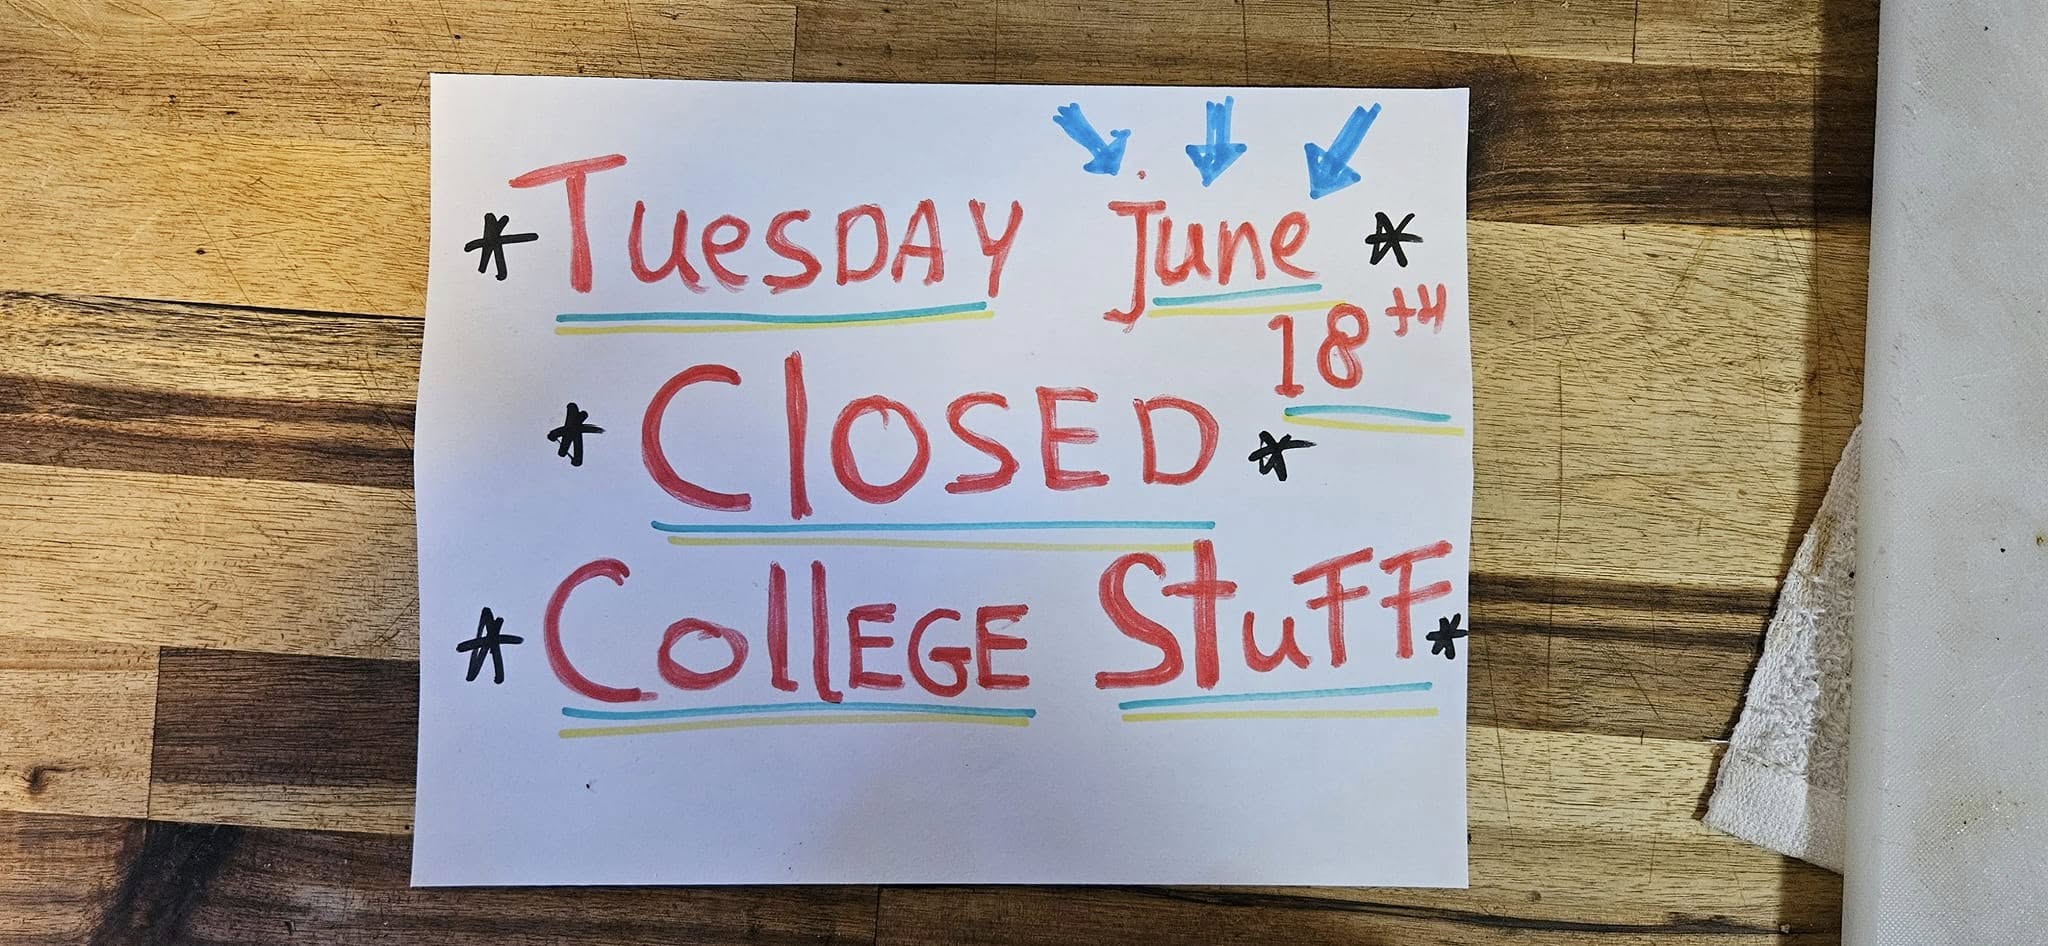 * TuesDAy june *
18th
* ClOSED *
* CollEGE StuFF *